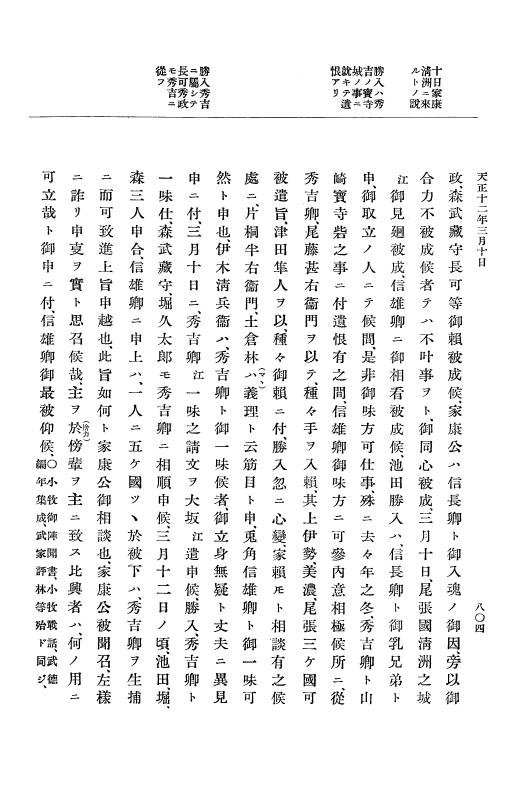 十日家康
淸洲ニ來
ルトノ説
勝入ハ秀
吉ノ寶寺
城ノ事ニ
就キテ遺
恨アリ
勝入秀吉
ニ屬シテ
長可秀政
モ秀吉ニ
從フ
天正十二年三月十日
八〇四
政、森武藏守長可等御賴被成候、家康公ハ信長卿ト御入魂ノ御因旁以御
合力不被成候者テハ不叶事ヲト、御同心被成、三月十日、尾張國淸洲之城
江御見廻被成、信雄卿ニ御相看被成候、池田勝入ハ、信長卿ト御乳兄弟ト
申、御取立ノ人ニテ候間、是非御味方可仕事殊ニ去々年之冬秀吉卿ト山
崎寶寺砦之事ニ付遺恨有之間、信雄卿御味方ニ可參內意相極候所ニ、從
秀吉卿、尾藤甚右衞門ヲ以テ、種々手ヲ入賴、其上伊勢、美濃、尾張三ケ國可
被遣旨、津田隼人ヲ以、種々御賴ニ付、勝入忽ニ心變、家賴モト相談有之候
處ニ、片桐半右衞門、土倉林ハ(マヽ)義理ト云筋目ト申、兎角信雄卿ト御一味可
然ト申也、伊木淸兵衞ハ、秀吉卿ト御一味候者、御立身無疑ト丈夫ニ異見
申ニ付、三月十日ニ、秀吉卿江一味之請文ヲ大坂江遣申候、勝入、秀吉卿ト
一味仕、森武藏守、堀久太郎モ秀吉卿ニ相順申候、三月十二日ノ頃、池田、堀、
森三人申合、信雄卿ニ申上ハ、一人ニ五ケ國ツヽ於被下ハ、秀吉卿ヲ生捕
ニ而可致進上旨申越也、此旨如何ト家康公御相談也、家康公被聞召、左樣
ニ詐リ申㕝ヲ實ト思召候哉、主ヲ於傍輩ヲ主ニ致ス比興者ハ、何ノ用ニ
可立哉ト御申ニ付、信雄卿御最被仰候、〇小牧御陣聞書、小牧戰話、武德編年集成、武家評林等殆ド同ジ、